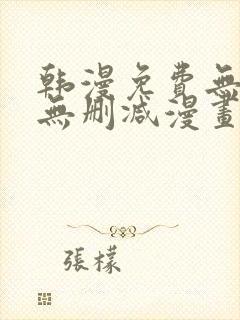 韩漫免費無
無删减漫畫
張檬